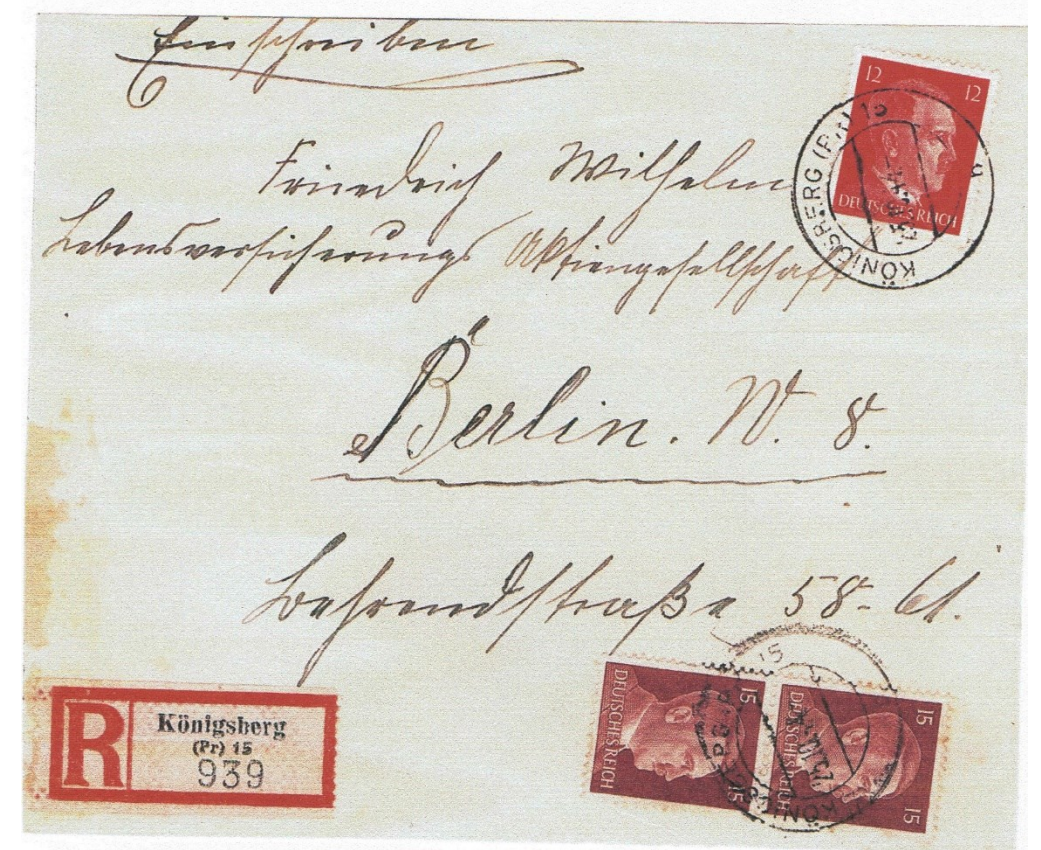 Einschreiben
12 12
DEUTSCHES REICH
KÖNIGSBERG (PR) 15
Friedrich Wilhelm
Lebensversicherungs Aktiengesellschaft
Berlin. W. 8.
Behrendstraße 58-61.
R Königsberg
(Pr) 15
939
15 15
DEUTSCHES REICH
15 15
DEUTSCHES REICH